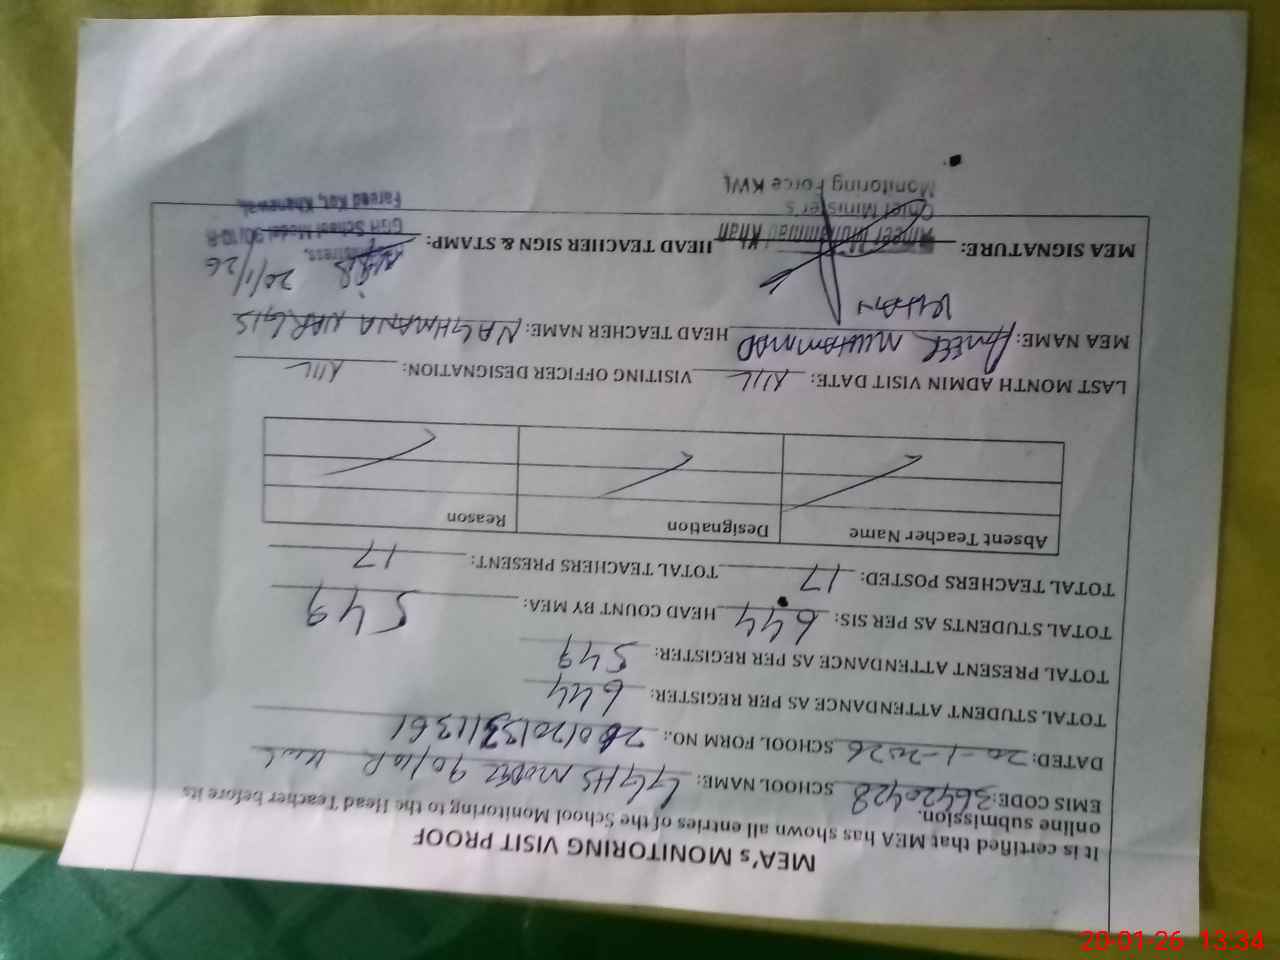 MEA's MONITORING VISIT PROOF
It is certified that MEA has shown all entries of the School Monitoring to the Head Teacher before its
online submission.
EMIS CODE: 36420428 SCHOOL NAME: GGHS MODEL 90/10R Kwl
DATED: 20-1-2026 SCHOOL FORM NO.:
TOTAL STUDENT ATTENDANCE AS PER REGISTER: 644
TOTAL PRESENT ATTENDANCE AS PER REGISTER: 549
TOTAL STUDENTS AS PER SIS: 644 HEAD COUNT BY MEA: 549
TOTAL TEACHERS POSTED: 17 TOTAL TEACHERS PRESENT: 17
Absent Teacher Name Designation Reason
LAST MONTH ADMIN VISIT DATE: NIL VISITING OFFICER DESIGNATION: NIL
MEA NAME: AMEER MUHAMMAD KHAN HEAD TEACHER NAME: NAGHMANA NARGIS
MEA SIGNATURE: Ameer Muhammad Khan HEAD TEACHER SIGN & STAMP: 20/1/26
Chief Minister's
Monitoring Force KWL
GGH School Model 90/10-R
Fareed Kot, Khanewal
20-01-26 13:34